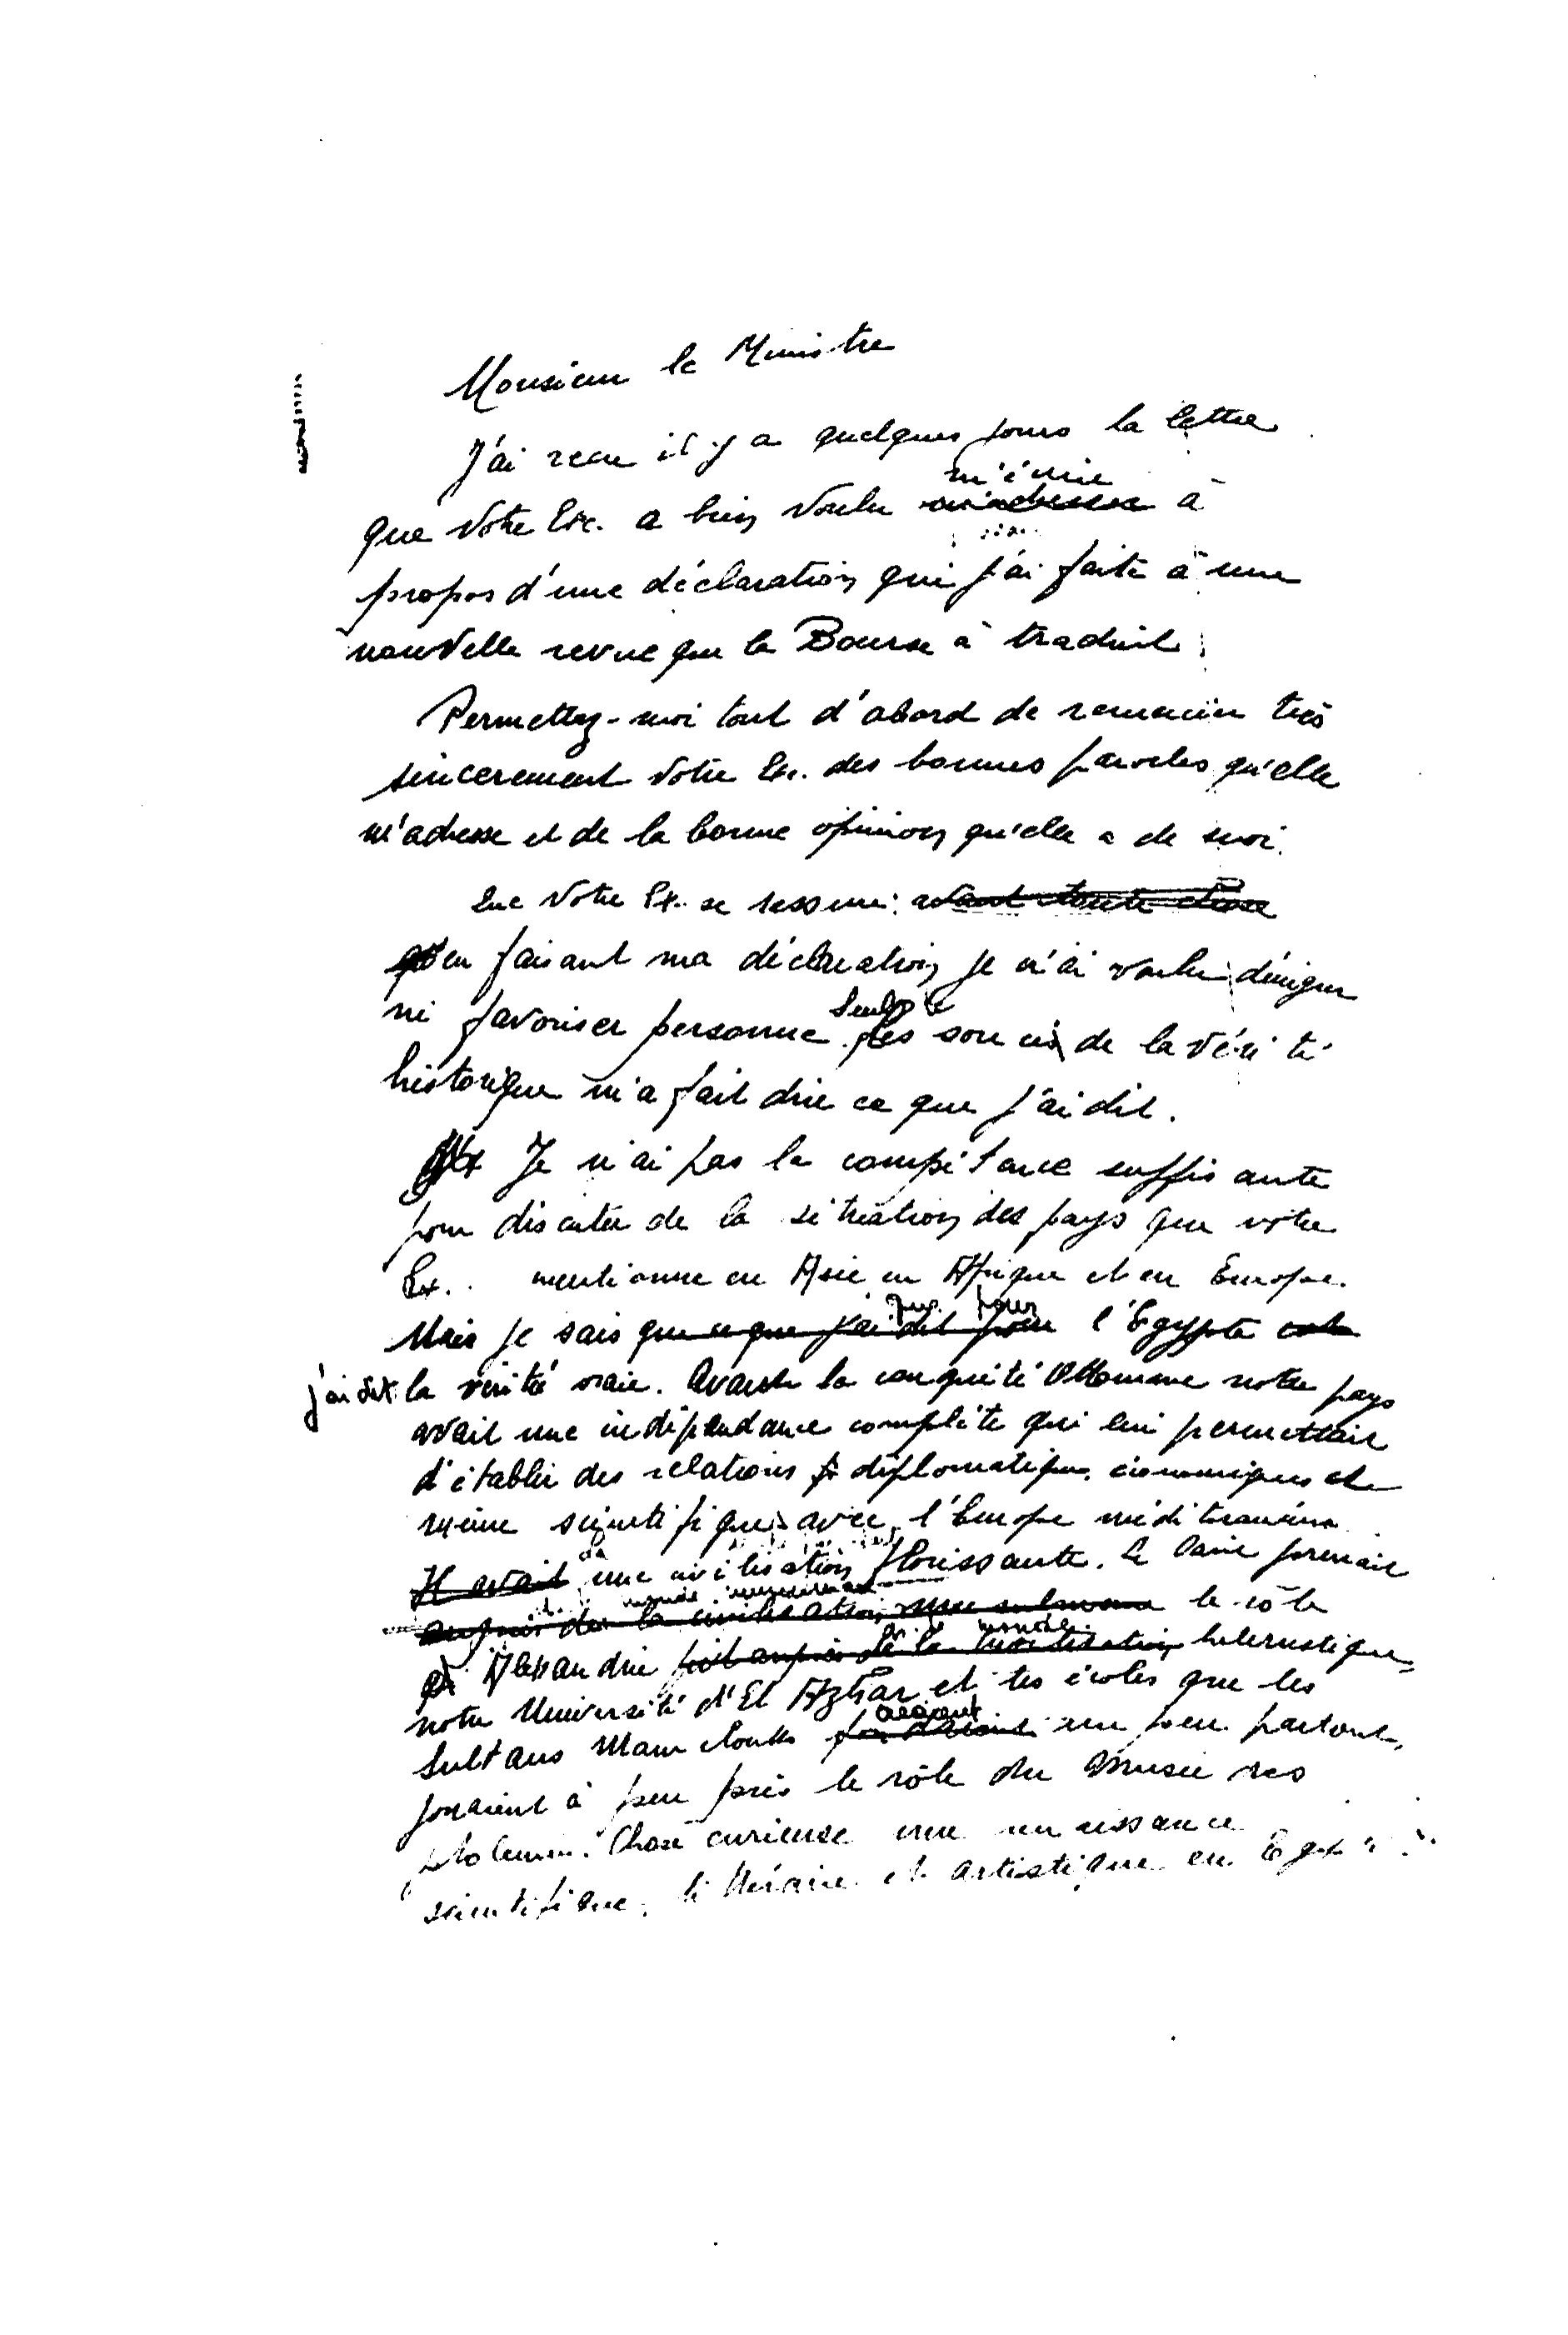 Monsieur le Ministre
J'ai recu il y a quelques jours la lettre
m'écrire
que Votre Exc. a bien voulu à
propos d'une déclaration que j'ai faite à une
nouvelle revue que la Bourse à traduit
Permettez-moi tout d'abord de remercier très
sincerement Votre Ex. des bonnes paroles qu'elle
m'adresse et de la bonne opinion qu'elle a de moi.
Que Votre Ex. se rassure: avant toute chose
en faisant ma déclaration je n'ai voulu dénigrer
ni favoriser personne. Seul le souci de la vérité
historique m'a fait dire ce que j'ai dit.
Je n'ai pas la compétence suffisante
pour discuter de la situation des pays que votre
Ex. mentionne en Asie en Afrique et en Europe.
que pour
Mais je sais que ce que j'ai dit pour l'Egypte est
j'ai dit la vérité vraie. Avant la conquête Ottomane notre pays
avait une indépendance complète qui lui permettait
d'établir des relations diplomatiques, économiques et
même scientifiques avec l'Europe méditerranéenne
Il avait une civilisation florissante. Le Caire prenait
monde musulman
auprès de la civilisation musulmane le rôle
monde
d'Alexandrie fut auprès de la civilisation hellenistique,
notre Université d'El Azhar et les écoles que les
Sultans Mamelouks créaient un peu partout,
jouaient à peu près le rôle du Musée des
ptolemées. Chose curieuse une renaissance
scientifique, littéraire et artistique en